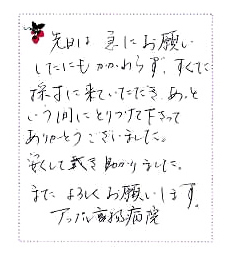 先日は 急にお願い
したにもかかわらず、すぐに
採寸に来ていただき、あっと
いう間にとりつけて下さって
ありがとうございました。
安くして戴き助かりました。
また よろしくお願いします。
アップル高
病院